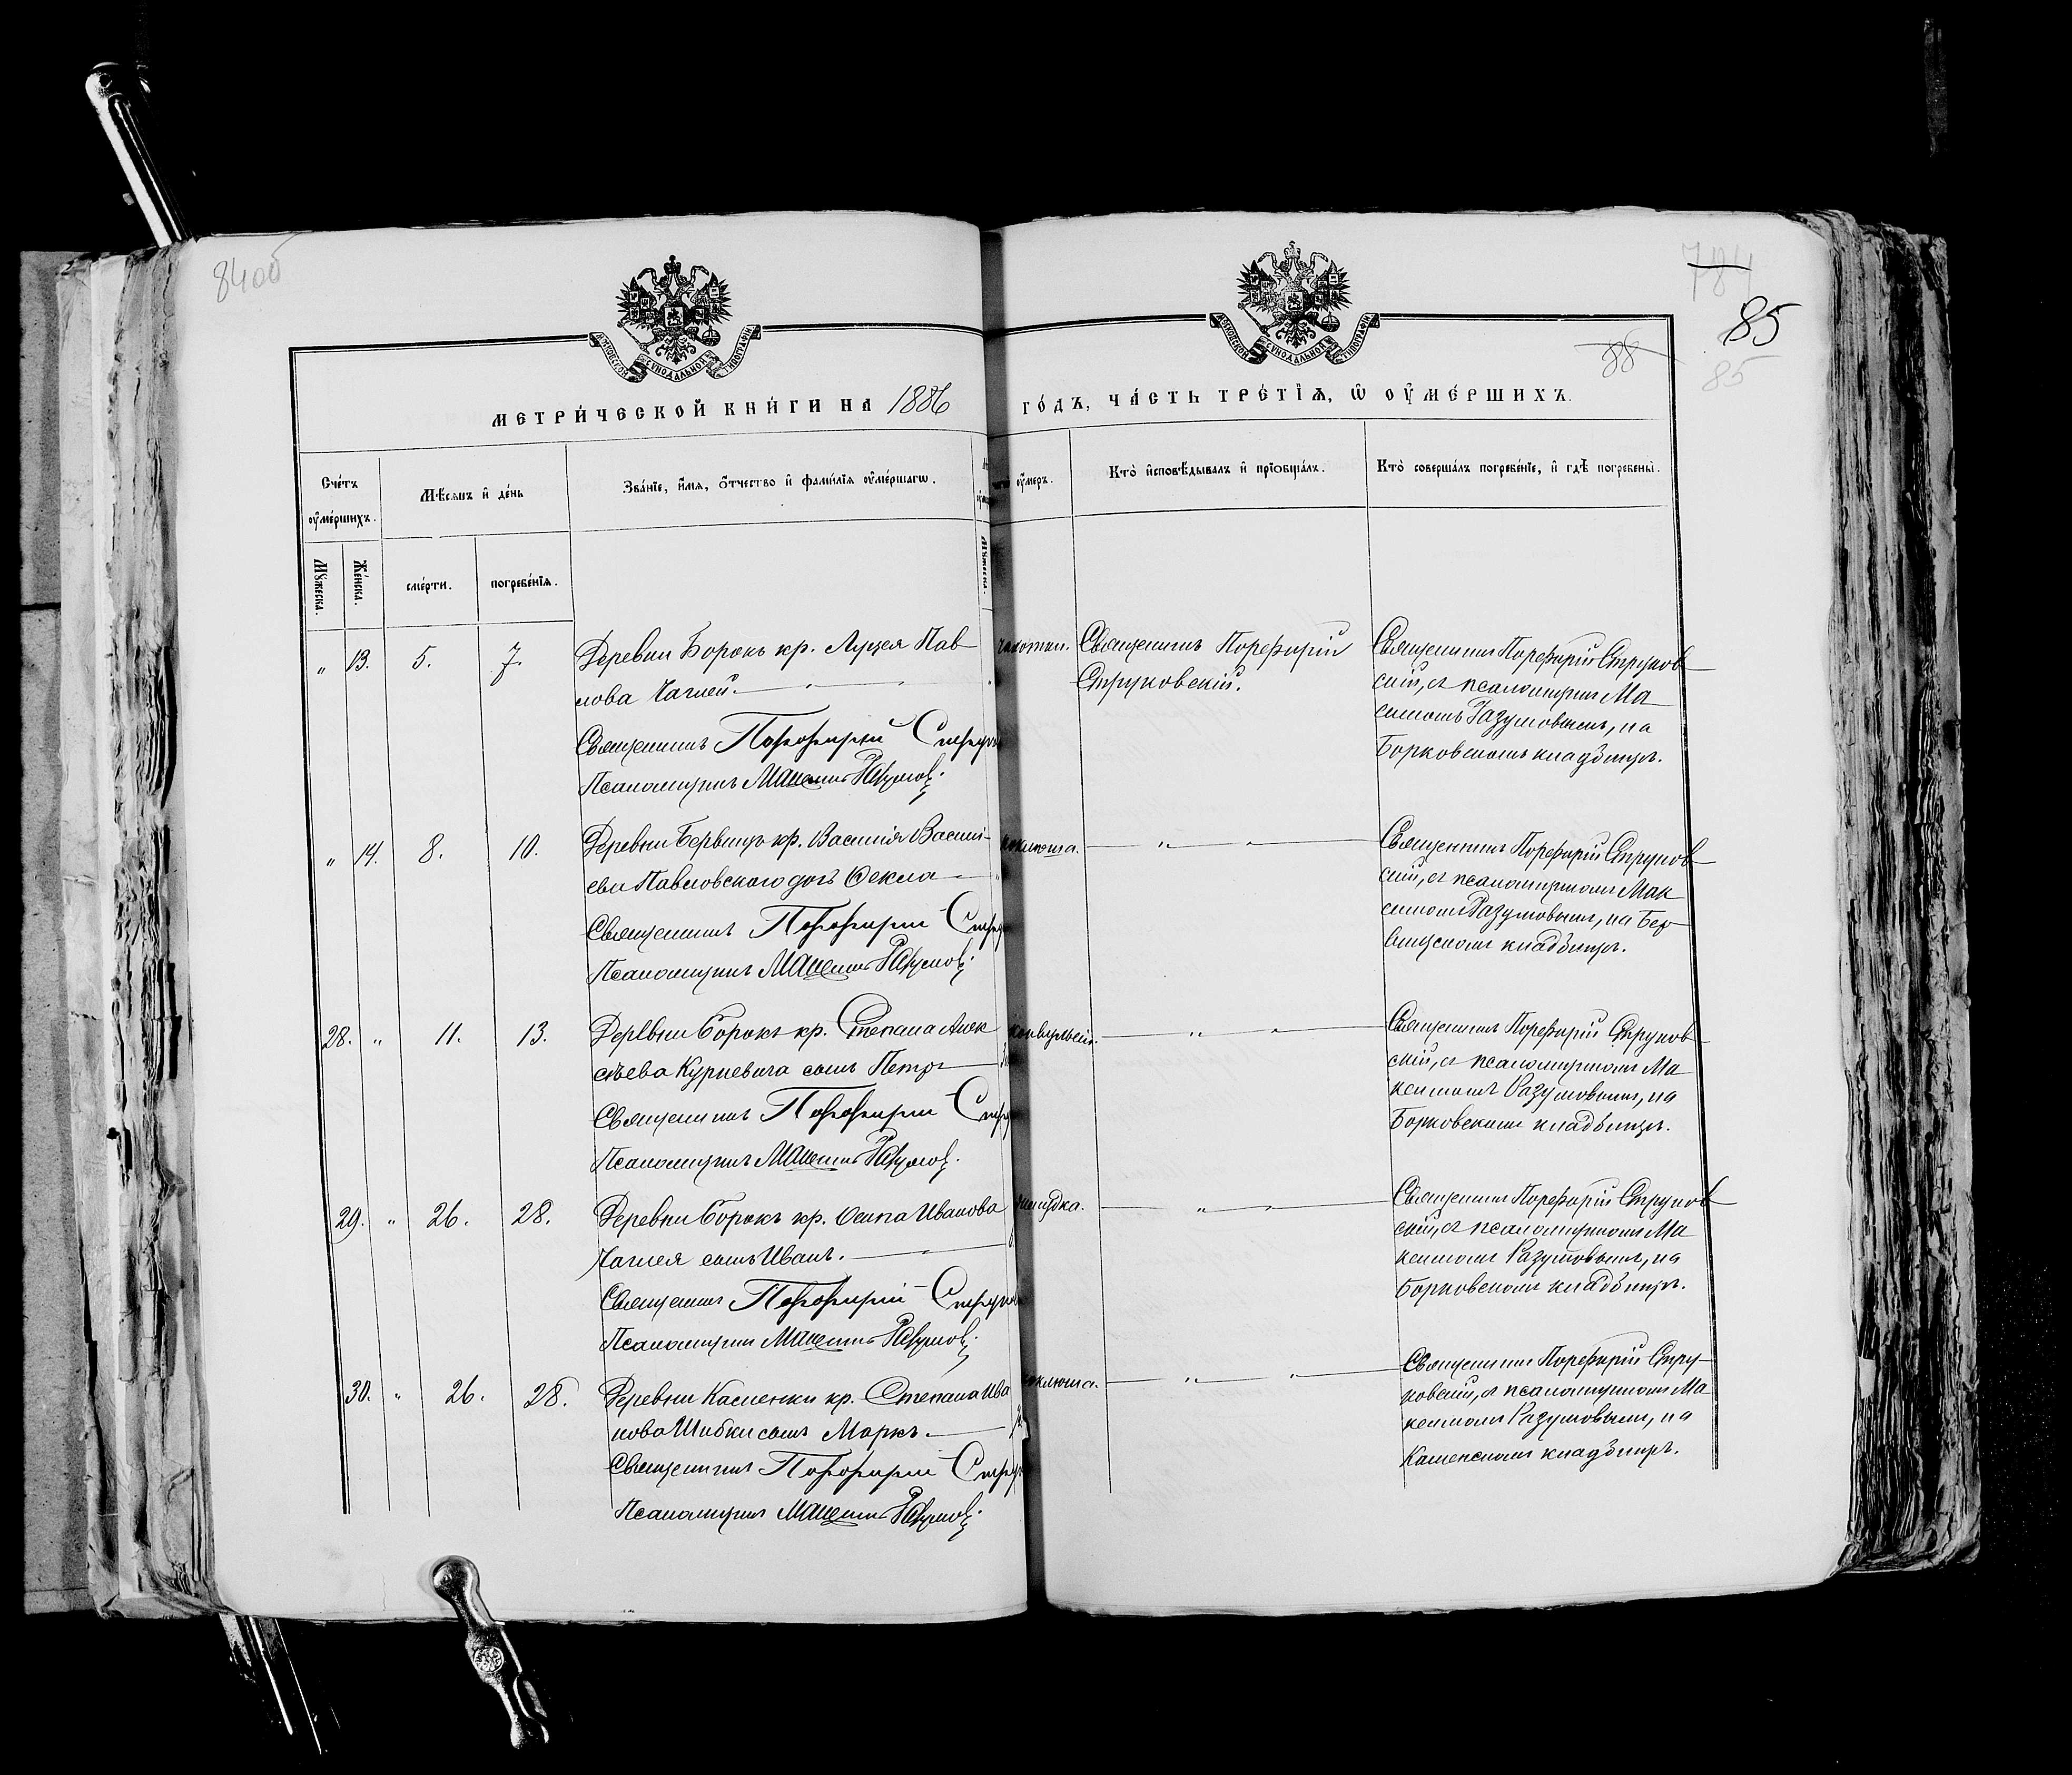 84об
784
85
88
85
МОСКОВСКОЙ СѴНОДАЛЬНОЙ ТИПОГРАФІИ
МОСКОВСКОЙ СѴНОДАЛЬНОЙ ТИПОГРАФІИ
МЕТРИ́ЧЕСКОЙ КНИ́ГИ НА 1886 ГО́ДЪ, ЧА́СТЬ ТРЕ́ТІѦ, Ѿ ОУ҆МЕ́РШИХЪ.
Сче́тъ оу҆ме́ршихъ.
Мѣ́сѧцъ и҆ де́нь
Зва́нїе, и҆́мѧ, ѻ҆́тчество и҆ фамилїѧ оу҆ме́ршагѡ.
оу҆́меръ.
Кто̀ и҆сповѣ́дывалъ и҆ прїѡбща́лъ.
Кто̀ соверша́лъ погребе́нїе, и҆ гдѣ̀ погребены̀.
Мꙋ́жеска.
Же́нска.
сме́рти.
погребе́нїѧ.
Мꙋ́жеска.
„ 13. 5. 7. Деревни Борокъ кр. Луцея Пав-
лова Чаглей.
Священникъ Порфирий
Псаломщикъ Максимъ Разумовъ.
чахотки.
Священникъ Порефирій
Струковскій.
Священникъ Порефирій Струков
скій, съ псаломщик Ма
симомъ Разумовымъ, на
Борковскомъ кладбищѣ.
„ 14. 8. 10. Деревни Бервищъ кр. Василія Васильева Павловскаго дочь Ѳекла
Священникъ Порфирий
Псаломщикъ Максимъ Разумовъ.
коклюша. „ „
Священникъ Порефирій Струков
скій, съ псаломщикомъ Мак
симомъ Разумовымъ, на Бер
вищскомъ кладбищѣ.
28. „ 11. 13. Деревни Борокъ кр. Степана Алек
сѣева Курневича сынъ Петръ
Священникъ Порфирий
Псаломщикъ Максимъ Разумовъ.
„ „
Священникъ Порефирій Струков
скій, съ псаломщикомъ Ма
ксимомъ Разумовымъ, на
Борковскомъ кладбищѣ.
29. „ 26. 28. Деревни Борокъ кр. Осипа Иванова
Чаглея сынъ Иванъ.
Священникъ Порфирий
Псаломщикъ Максимъ Разумовъ.
„ „
Священникъ Порефирій Струков
скій, съ псаломщикомъ Ма
ксимомъ Разумовымъ, на
Борковскомъ кладбищѣ.
30. „ 26. 28. Деревни Каменки кр. Степана Ива
нова Шибки сынъ Маркъ.
Священникъ Порфирий
Псаломщикъ Максимъ Разумовъ.
коклюша. „ „
Священникъ Порефирій Стру-
ковскій, съ псаломщикомъ Ма
ксимомъ Разумовымъ, на
Каменскомъ кладбищѣ.